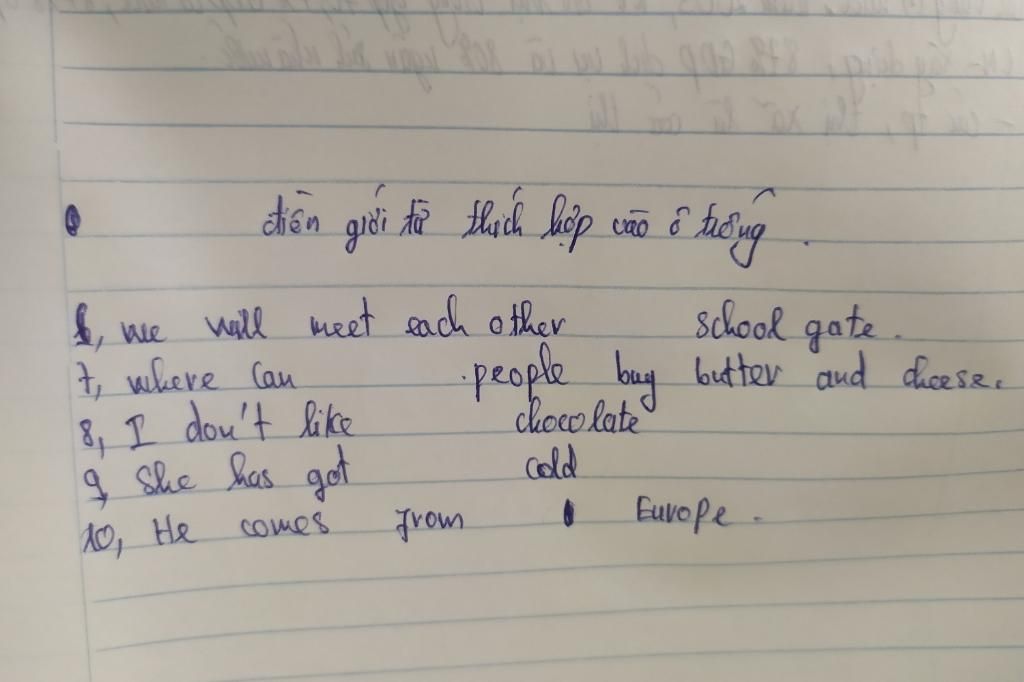 điền giới từ thích hợp vào ô trống.
6, we will meet each other school gate.
7, where can people buy butter and cheese.
8, I don't like chocolate
9, She has got cold
10, He comes from Europe.